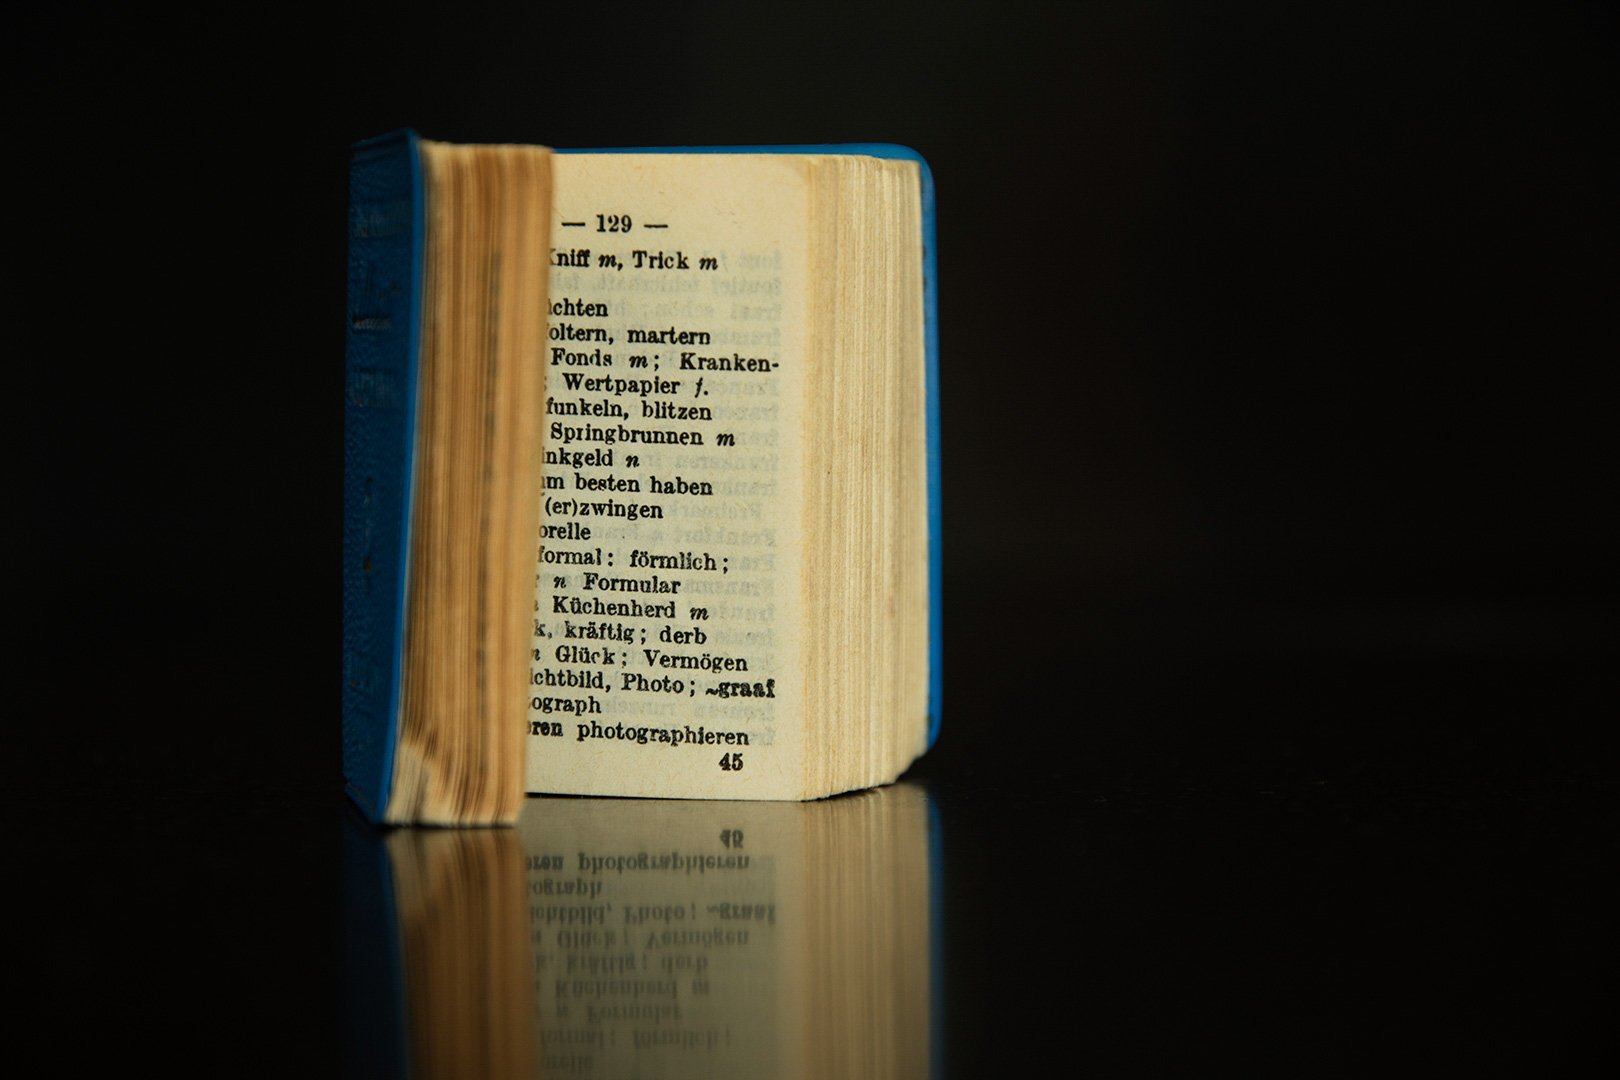 — 129 —
Kniff m, Trick m
achten
foltern, martern
Fonds m; Kranken-
; Wertpapier f.
funkeln, blitzen
Springbrunnen m
inkgeld n
um besten haben
(er)zwingen
orelle
formal: förmlich;
n Formular
Küchenherd m
k, kräftig; derb
n Glück; Vermögen
ichtbild, Photo; ~graaf
tograph
eren photographieren
45